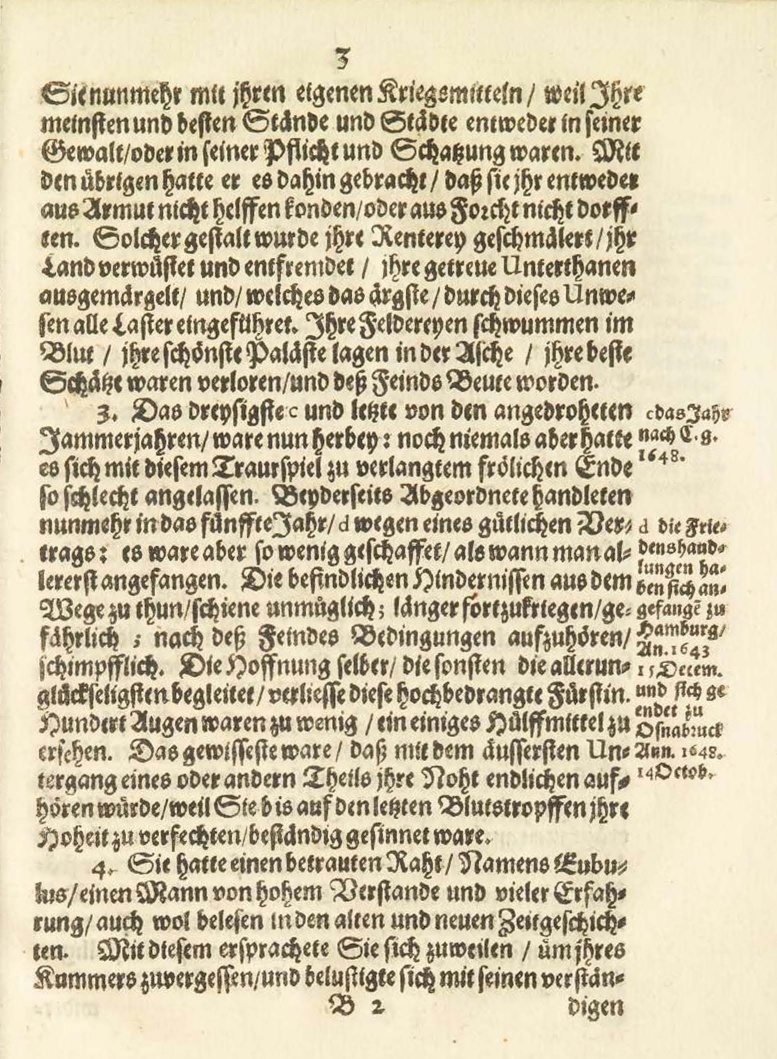 3
Sie nunmehr mit jhren eigenen Kriegsmitteln / weil Jhre
meinsten und besten Stände und Städte entweder in seiner
Gewalt/oder in seiner Pflicht und Schatzung waren. Mit
den übrigen hatte er es dahin gebracht / daß sie jhr entweder
aus Armut nicht helffen konden/oder aus Forcht nicht dorff-
ten. Solcher gestalt wurde jhre Renterey geschmälert/jhr
Land verwüstet und entfremdet / jhre getreue Unterthanen
ausgemärgelt/ und/welches das ärgste/durch dieses Unwe-
sen alle Laster eingeführet. Jhre Feldereyen schwummen im
Blut / jhre schönste Paläste lagen in der Asche / jhre beste
Schätze waren verloren/und deß Feinds Beute worden.
3. Das dreysigste c und letzte von den angedroheten
Jammerjahren/ware nun herbey: noch niemals aber hatte
es sich mit diesem Traurspiel zu verlangtem frölichen Ende
so schlecht angelassen. Beyderseits Abgeordnete handleten
nunmehr in das fünffte Jahr/d wegen eines gütlichen Ver-
trags: es ware aber so wenig geschaffet/als wann man al-
lererst angefangen. Die befindlichen Hindernissen aus dem
Wege zu thun/schiene unmüglich; länger fortzukriegen/ge-
fährlich ; nach deß Feindes Bedingungen aufzuhören/
schimpfflich. Die Hoffnung selber/die sonsten die allerun-
glückseligsten begleitet/verliesse diese hochbedrangte Fürstin.
Hundert Augen waren zu wenig /ein einiges Hülffmittel zu
ersehen. Das gewisseste ware/ daß mit dem äussersten Un-
tergang eines oder andern Theils jhre Noht endlichen auf-
hören würde/weil Sie bis auf den letzten Blutstropffen jhre
Hoheit zu verfechten/beständig gesinnet ware.
4. Sie hatte einen betrauten Raht/Namens Eubu-
lus/einen Mann von hohem Verstande und vieler Erfah-
rung/auch wol belesen in den alten und neuen Zeitgeschich-
ten. Mit diesem ersprachete Sie sich zuweilen / üm jhres
Kummers zuvergessen/und belustigte sich mit seinen verstän-
B 2 digen
c das Jahr
nach C. g.
1648.
d die Frie-
denshand-
lungen ha-
ben sich an-
gefangẽ zu
Hamburg/
An. 1643
15 Decem.
und sich ge
endet zu
Osnabruck
Ann. 1648.
14 Octob.